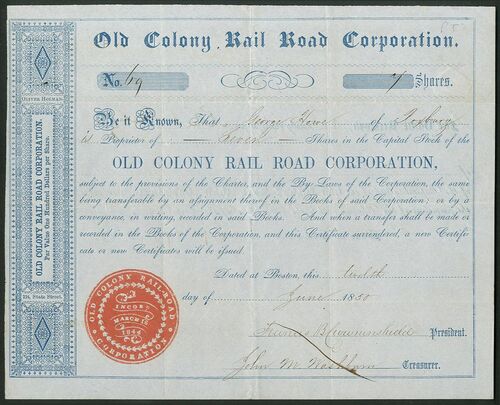 Old Colony Rail Road Corporation.
No. 69
7 Shares.
Be it Known, That George Howe of Roxbury
is Proprietor of Seven Shares in the Capital Stock of the
OLD COLONY RAIL ROAD CORPORATION,
subject to the provisions of the Charter, and the By-Laws of the Corporation, the same
being transferable by an assignment thereof in the Books of said Corporation; or by a
conveyance, in writing, recorded in said Books. And when a transfer shall be made or
recorded in the Books of the Corporation, and this Certificate surrendered, a new Certifi-
cate or new Certificates will be issued.
Dated at Boston, this twelfth
day of June 1850
President.
John M. Washburn
Treasurer.
OLIVER HOLMAN,
OLD COLONY RAIL ROAD CORPORATION.
Par Value One Hundred Dollars per Share.
124, State Street.
OLD COLONY RAIL-ROAD
CORPORATION
INCOR.
MARCH 16
1844